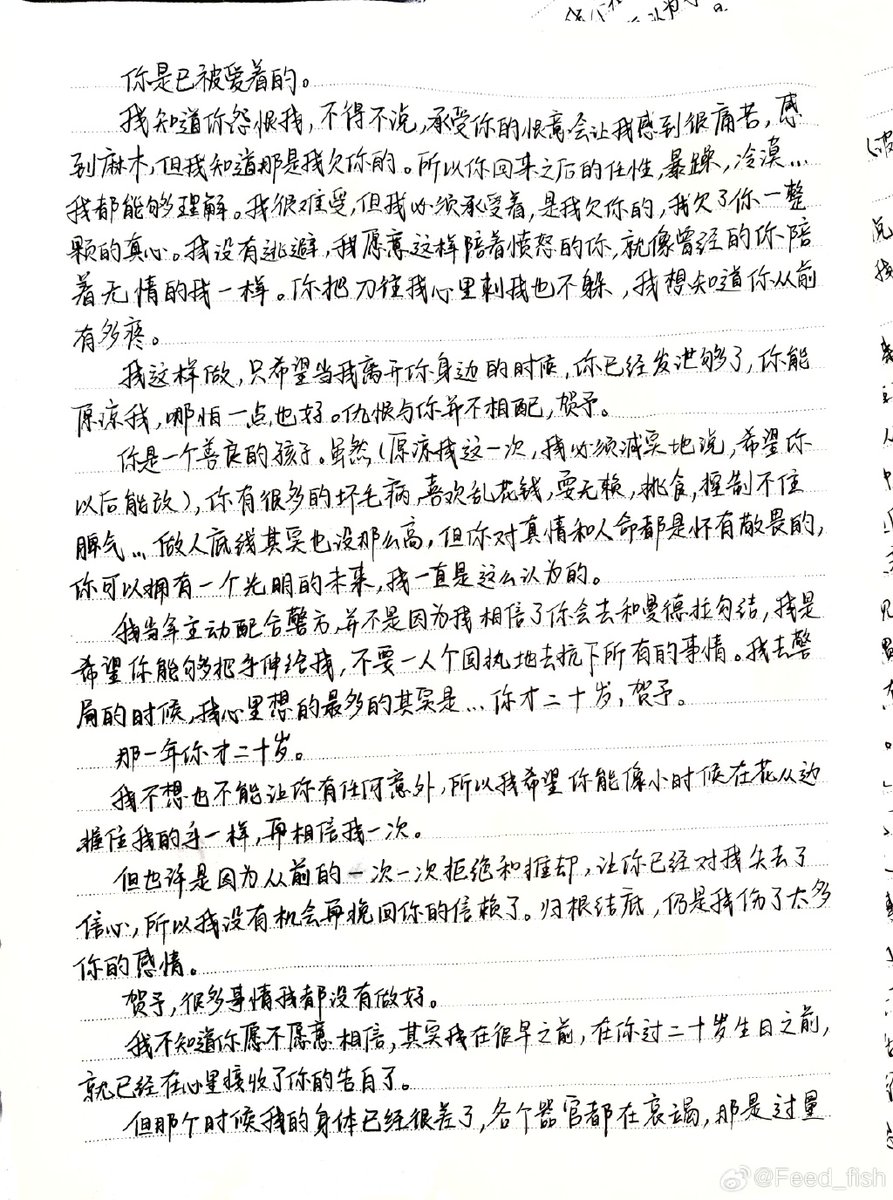 你是已被爱着的。
我知道你怨恨我，不得不说，承受你的恨意会让我感到很痛苦，感
到麻木，但我知道那是我欠你的。所以你回来之后的任性，暴躁，冷漠...
我都能够理解。我很难受，但我必须承受着，是我欠你的，我欠了你一整
颗的真心。我没有逃避，我愿意这样陪着愤怒的你，就像曾经的你陪
着无情的我一样。你把刀往我心里刺我也不躲，我想知道你从前
有多疼。
我这样做，只希望当我离开你身边的时候，你已经发泄够了，你能
原谅我，哪怕一点也好。仇恨与你并不相配，贺予。
你是一个善良的孩子。虽然（原谅我这一次，我必须诚实地说，希望你
以后能改），你有很多的坏毛病，喜欢乱花钱，耍无赖，挑食，控制不住
脾气...做人底线其实也没那么高，但你对真情和人命都是怀有敬畏的，
你可以拥有一个光明的未来，我一直是这么认为的。
我当年主动配合警方，并不是因为我相信了你会去和曼德拉勾结，我是
希望你能够把手伸给我，不要一人个固执地去抗下所有的事情。我去警
局的时候，我心里想的最多的其实是...你才二十岁，贺予。
那一年你才二十岁。
我不想也不能让你有任何意外，所以我希望你能像小时候在花丛边
握住我的手一样，再相信我一次。
但也许是因为从前的一次一次拒绝和推却，让你已经对我失去了
信心，所以我没有机会再挽回你的信赖了。归根结底，仍是我伤了太多
你的感情。
贺予，很多事情我都没有做好。
我不知道你愿不愿意相信，其实我在很早之前，在你过二十岁生日之前，
就已经在心里接收了你的告白了。
但那个时候我的身体已经很差了，各个器官都在衰竭，那是过量
@Feed_fish